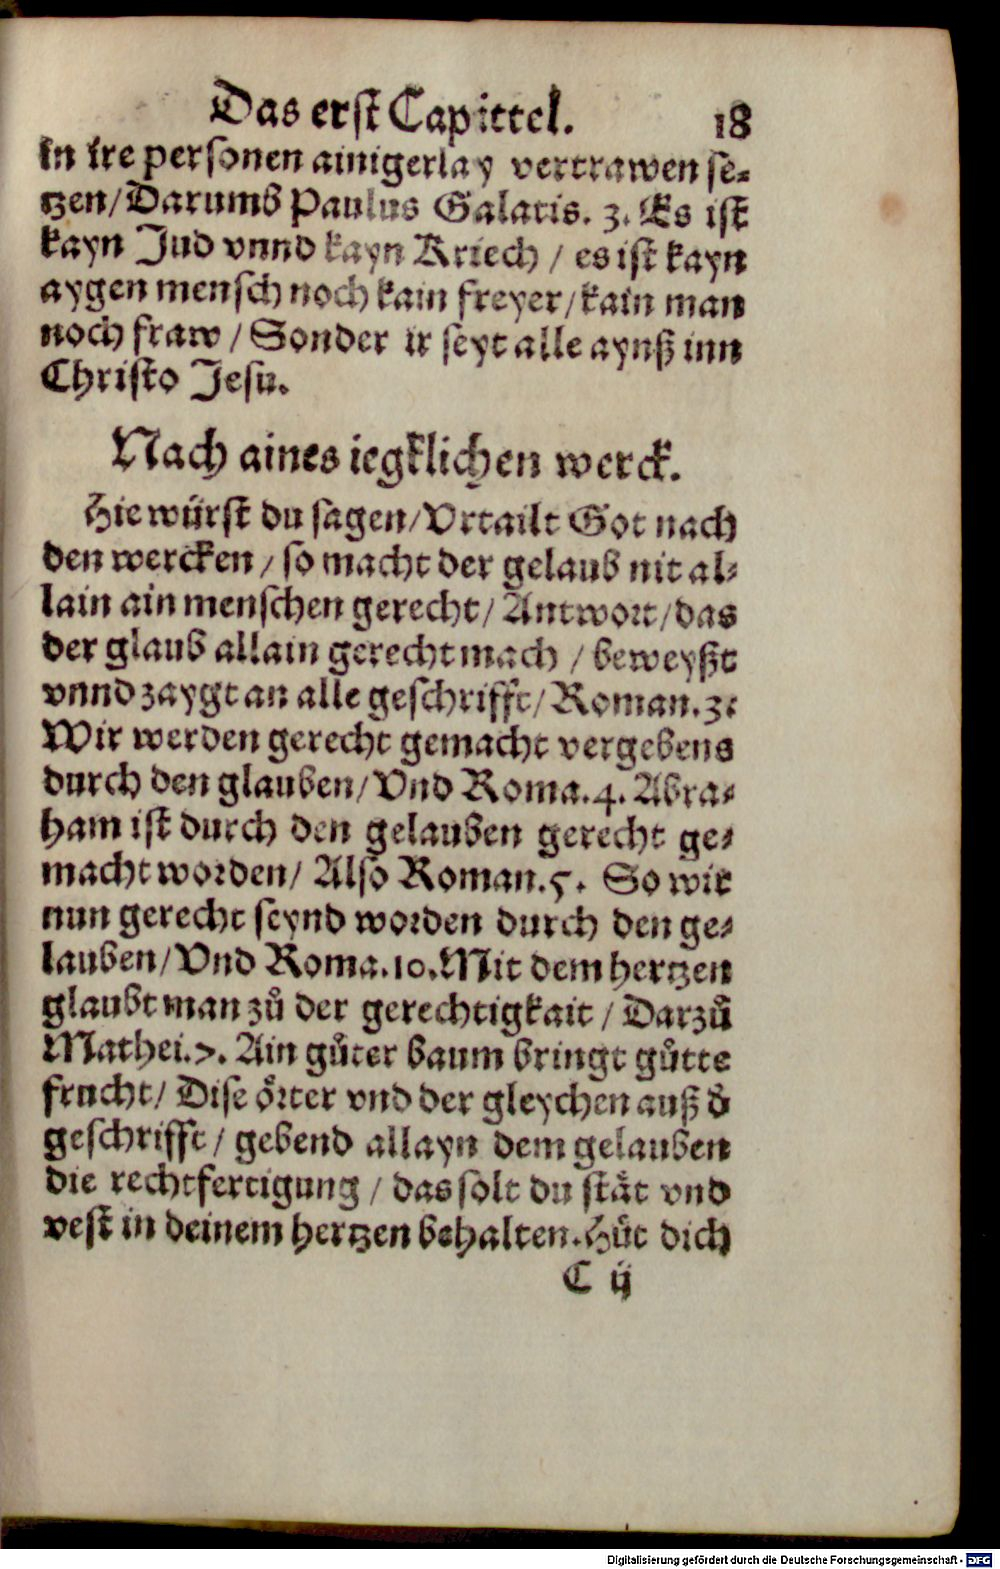 Das erst Capittel. 18
in ire personen ainigerlay vertrawen se⸗
tzen/Darumb Paulus Galatis. 3. Es ist
kayn Jud vnnd kayn Kriech / es ist kayn
aygen mensch noch kain freyer/kain man
noch fraw / Sonder ir seyt alle aynß inn
Christo Jesu.
Nach aines iegklichen werck.
Hie würst du sagen/Vrtailt Got nach
den wercken / so macht der gelaub nit al⸗
lain ain menschen gerecht/ Antwort/das
der glaub allain gerecht mach / beweyßt
vnnd zaygt an alle geschrifft/ Roman.3:
Wir werden gerecht gemacht vergebens
durch den glauben/Vnd Roma.4. Abra⸗
ham ist durch den gelauben gerecht ge⸗
macht worden/ Also Roman.5. So wir
nun gerecht seynd worden durch den ge⸗
lauben/Vnd Roma.10.Mit dem hertzen
glaubt man zů der gerechtigkait / Darzů
Mathei.7. Ain gůter baum bringt gůtte
frucht/ Dise örter vnd der gleychen auß d̛
geschrifft / gebend allayn dem gelauben
die rechtfertigung / das solt du stät vnd
vest in deinem hertzen behalten.Hüt dich
C ij
Digitalisierung gefördert durch die Deutsche Forschungsgemeinschaft - DFG